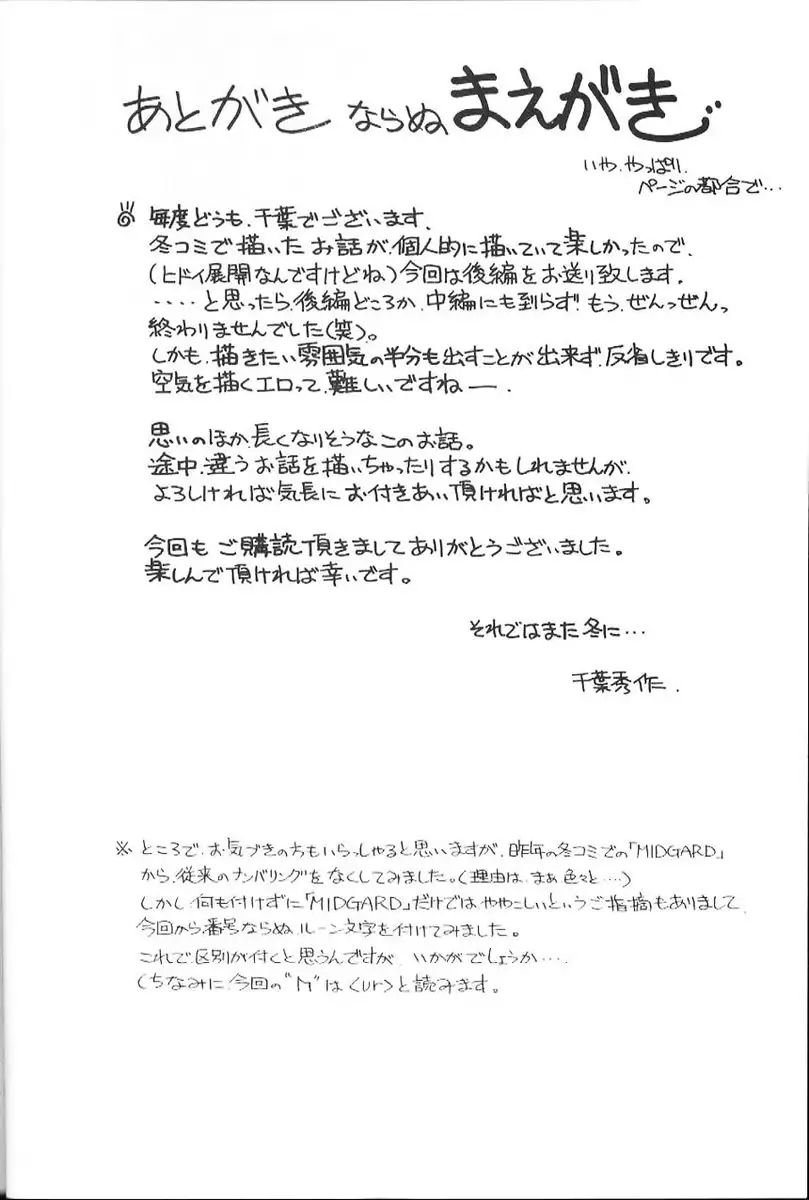 あとがき ならぬ、まえがき
いや、やっぱり、
ページの都合で…
毎度どうも、千葉でございます。
冬コミで描いた お話が、個人的に描いていて楽しかったので、
(ヒドイ展開なんですけどね)今回は後編をお送り致します。
‥‥と思ったら、後編どころか、中編にも到らず!もう、ぜんっぜんっ
終わりませんでした(笑)。
しかも、描きたい雰囲気の半分も出すことが出来ず、反省しきりです。
空気を描くエロって、難しいですねー。
思いのほか、長くなりそうなこのお話。
途中、違うお話を描いちゃったりするかもしれませんが、
よろしければ気長に お付きあい頂ければと思います。
今回も ご購読頂きましてありがとうございました。
楽しんで頂ければ幸いです。
それではまた冬に…
千葉秀作.
※ ところで、お気づきの方もいらっしゃると思いますが、昨年の冬コミでの「MIDGARD」
から、従来のナンバリングをなくしてみました。(理由は、まぁ色々と…)
しかし 何も付けずに「MIDGARD」だけでは ややこしいというご指摘もありまして、
今回から番号ならぬ、ルーン文字を付けてみました。
これで区別が付くと思うんですが、いかがでしょうか…
(ちなみに今回の"ᚢ"は<ur>と読みます。